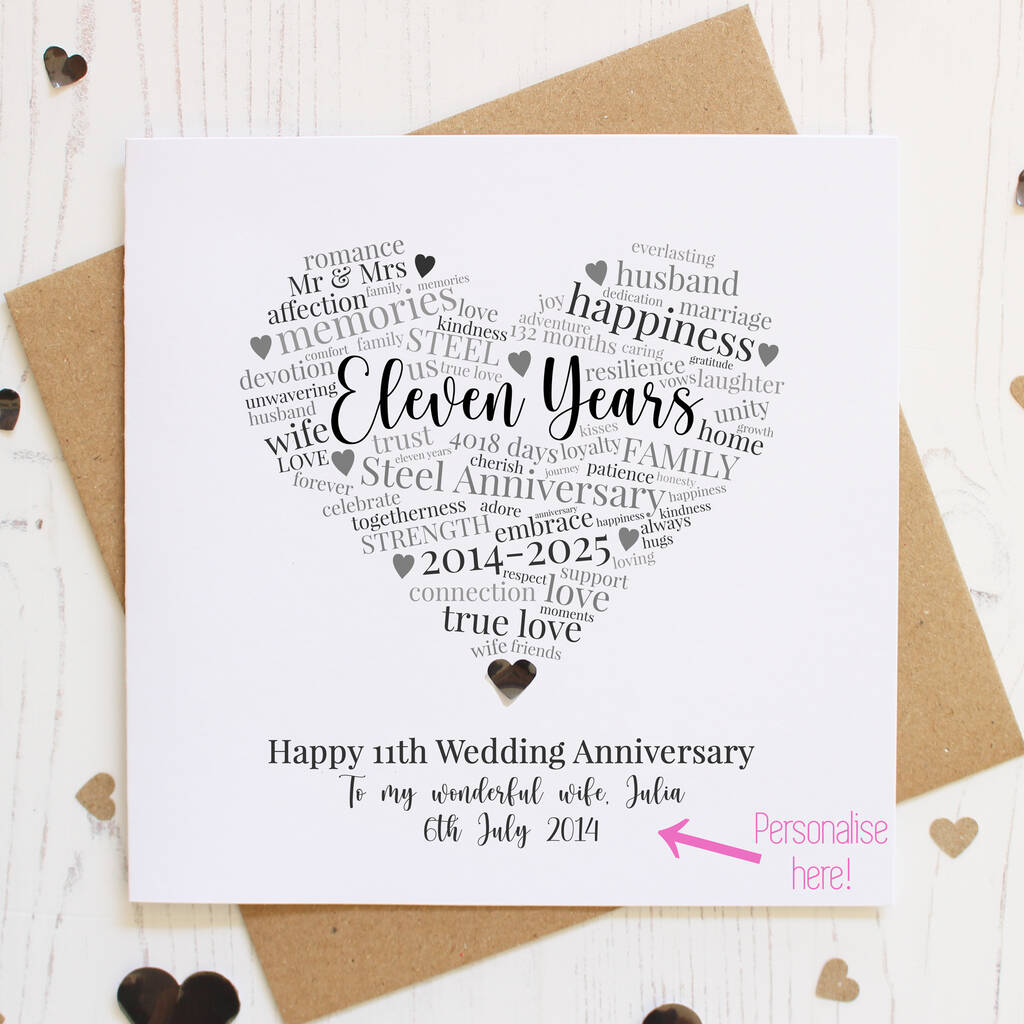 romance
everlasting
Mr & Mrs
husband
affection
family
memories
dedication
marriage
memories
love
joy
happiness
kindness
adventure
132 months
caring
gratitude
comfort
family
STEEL
devotion
us
true love
resilience
vows
laughter
unwavering
husband
Eleven Years
unity
growth
wife
trust
4018 days
kisses
loyalty
home
LOVE
eleven years
cherish
journey
patience
FAMILY
honesty
forever
Steel Anniversary
happiness
celebrate
togetherness
adore
anniversary
kindness
STRENGTH
embrace
happiness
always
hugs
2014-2025
loving
respect
support
connection
love
moments
true love
wife
friends
Happy 11th Wedding Anniversary
To my wonderful wife, Julia
6th July 2014
Personalise
here!